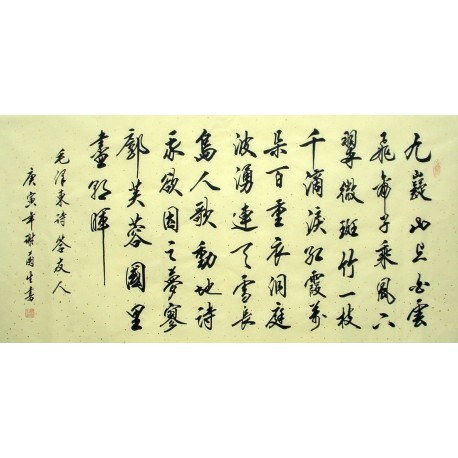 九嶷山上白雲
飛帝子乘風下
翠微斑竹一枝
千滴淚紅霞萬
朵百重衣洞庭
波湧連天雪長
島人歌動地詩
我欲因之夢寥
廓芙蓉國里
盡朝暉
毛澤東詩答友人
庚寅年書